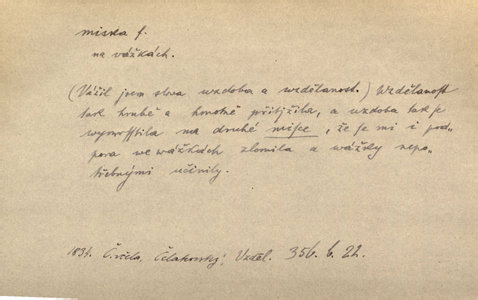 miska f.
na vážkách.
(Vážil jsem slova wzdoba a wzdělanost.) Wzdělanost
tak hrubě a hmotně přitížila, a wzdoba tak je
wymrštila na druhé misce, že se mi i pod-
pora we wážkách zlomila a wážky nepo-
třebnými učinily.
1834. Č. včela, Čelakovský; Vzděl. 356. b. 22.